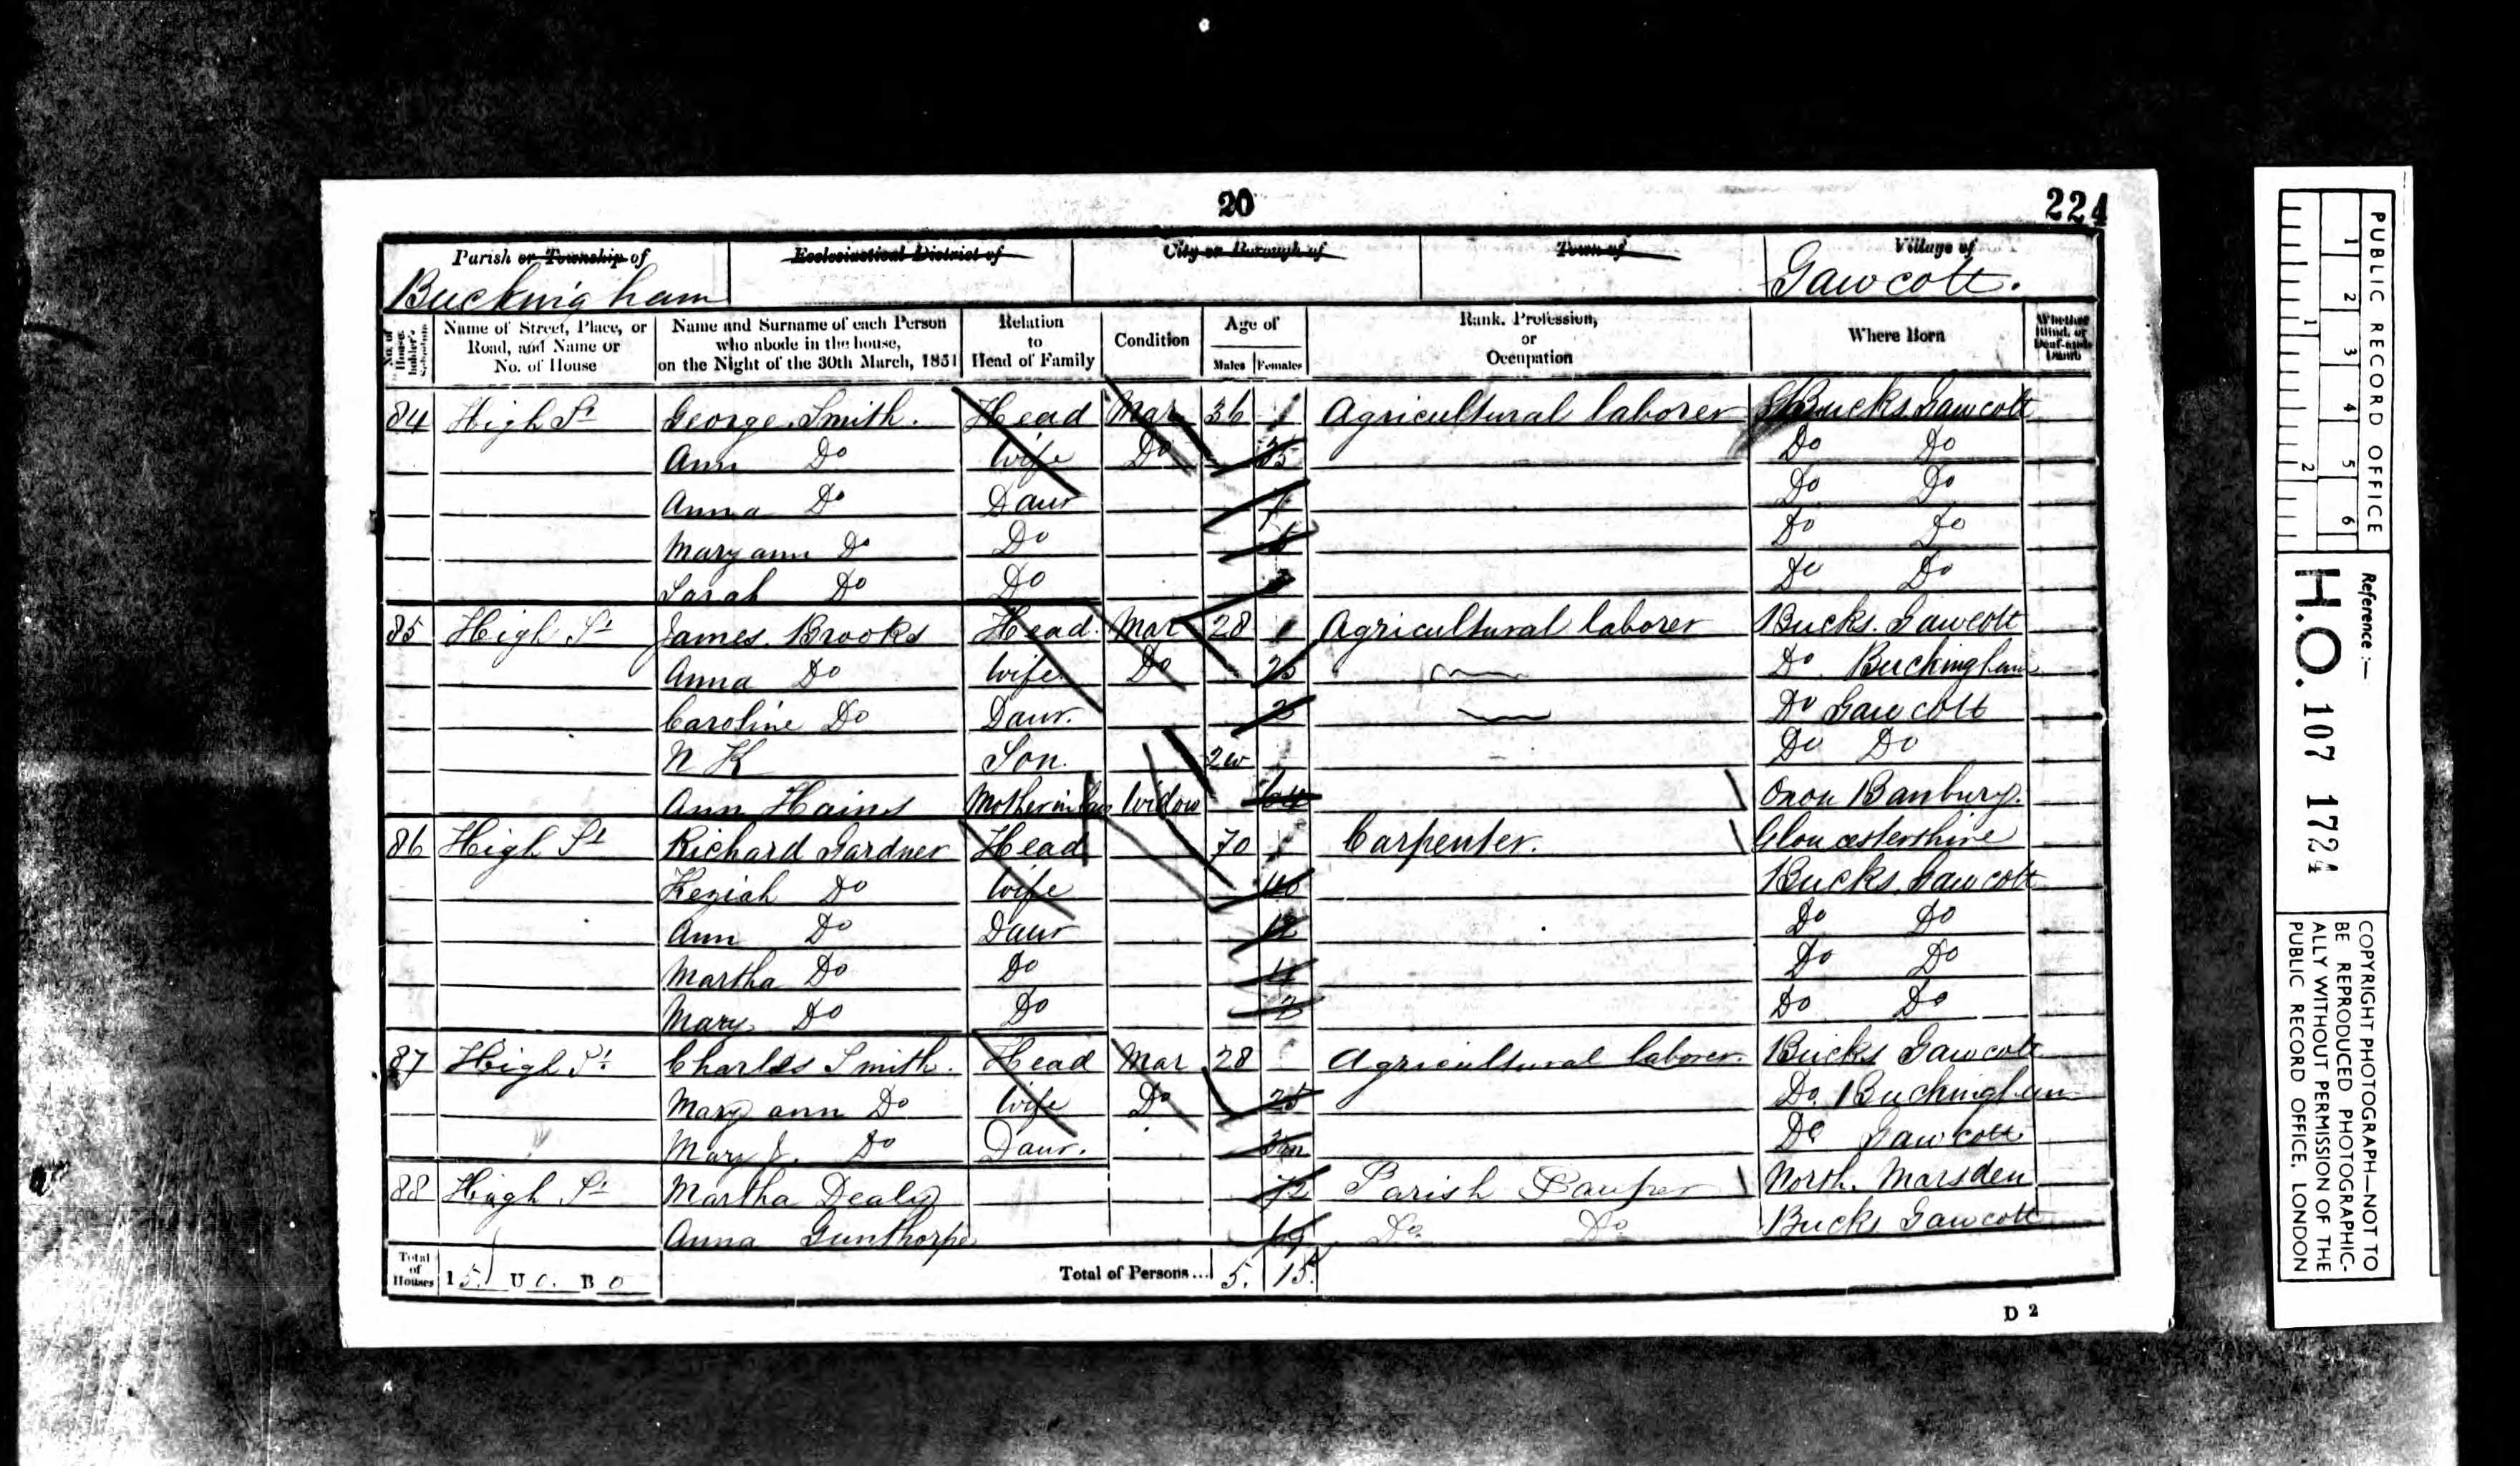 20
224
Parish or Township of
Ecclesiastical District of
City or Borough of
Town of
Village of
Buckingham
Gawcott.
No. of House-holder's Schedule
Name of Street, Place, or Road, and Name or No. of House
Name and Surname of each Person who abode in the house, on the Night of the 30th March, 1851
Relation to Head of Family
Condition
Age of
Males Females
Rank, Profession, or Occupation
Where Born
Whether Blind, or Deaf-and-Dumb
84 High St George Smith. Head Mar 36 Agricultural laborer Bucks Gawcott
Ann Do Wife Do 35 Do Do
Anna Do Daur Do Do
Mary ann Do Do Do Do
Sarah Do Do Do Do
85 High St James Brooks Head Mar 28 Agricultural laborer Bucks. Gawcott
Anna Do Wife Do 25 Do Buckingham
Caroline Do Daur. 2 Do Gawcott
N K Son. 2w Do Do
Ann Hains Mother in law Widow 64 Oxon Banbury.
86 High St Richard Gardner Head 70 Carpenter. Gloucestershire
Keziah Do Wife 40 Bucks Gawcott
Ann Do Daur 12 Do Do
Martha Do Do 4 Do Do
Mary Do Do 2 Do Do
87 High St Charles Smith. Head Mar 28 Agricultural laborer. Bucks Gawcott
Mary ann Do Wife Do 25 Do. Buckingham
Mary J. Do Daur. 3m Do Gawcott
88 High St Martha Dealy 72 Parish Pauper North. Marsden
Anna Gunthorpe 69 Do Do Bucks Gawcott
Total of Houses I 5. U 0. B 0
Total of Persons... 5. 15
D 2
PUBLIC RECORD OFFICE
1 2 3 4 5 6
1 2
Reference :-
H.O. 107 1724
COPYRIGHT PHOTOGRAPH—NOT TO BE REPRODUCED PHOTOGRAPHIC-ALLY WITHOUT PERMISSION OF THE PUBLIC RECORD OFFICE, LONDON